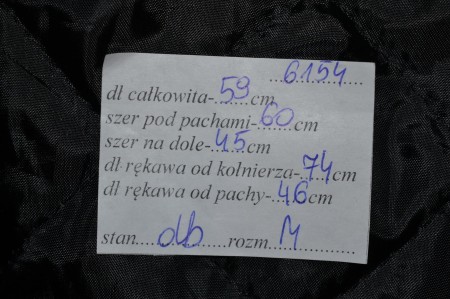 6154
dł całkowita-59cm
szer pod pachami-60cm
szer na dole-45cm
dł rękawa od kołnierza-74cm
dł rękawa od pachy-46cm
stan....db.......rozm..M..............